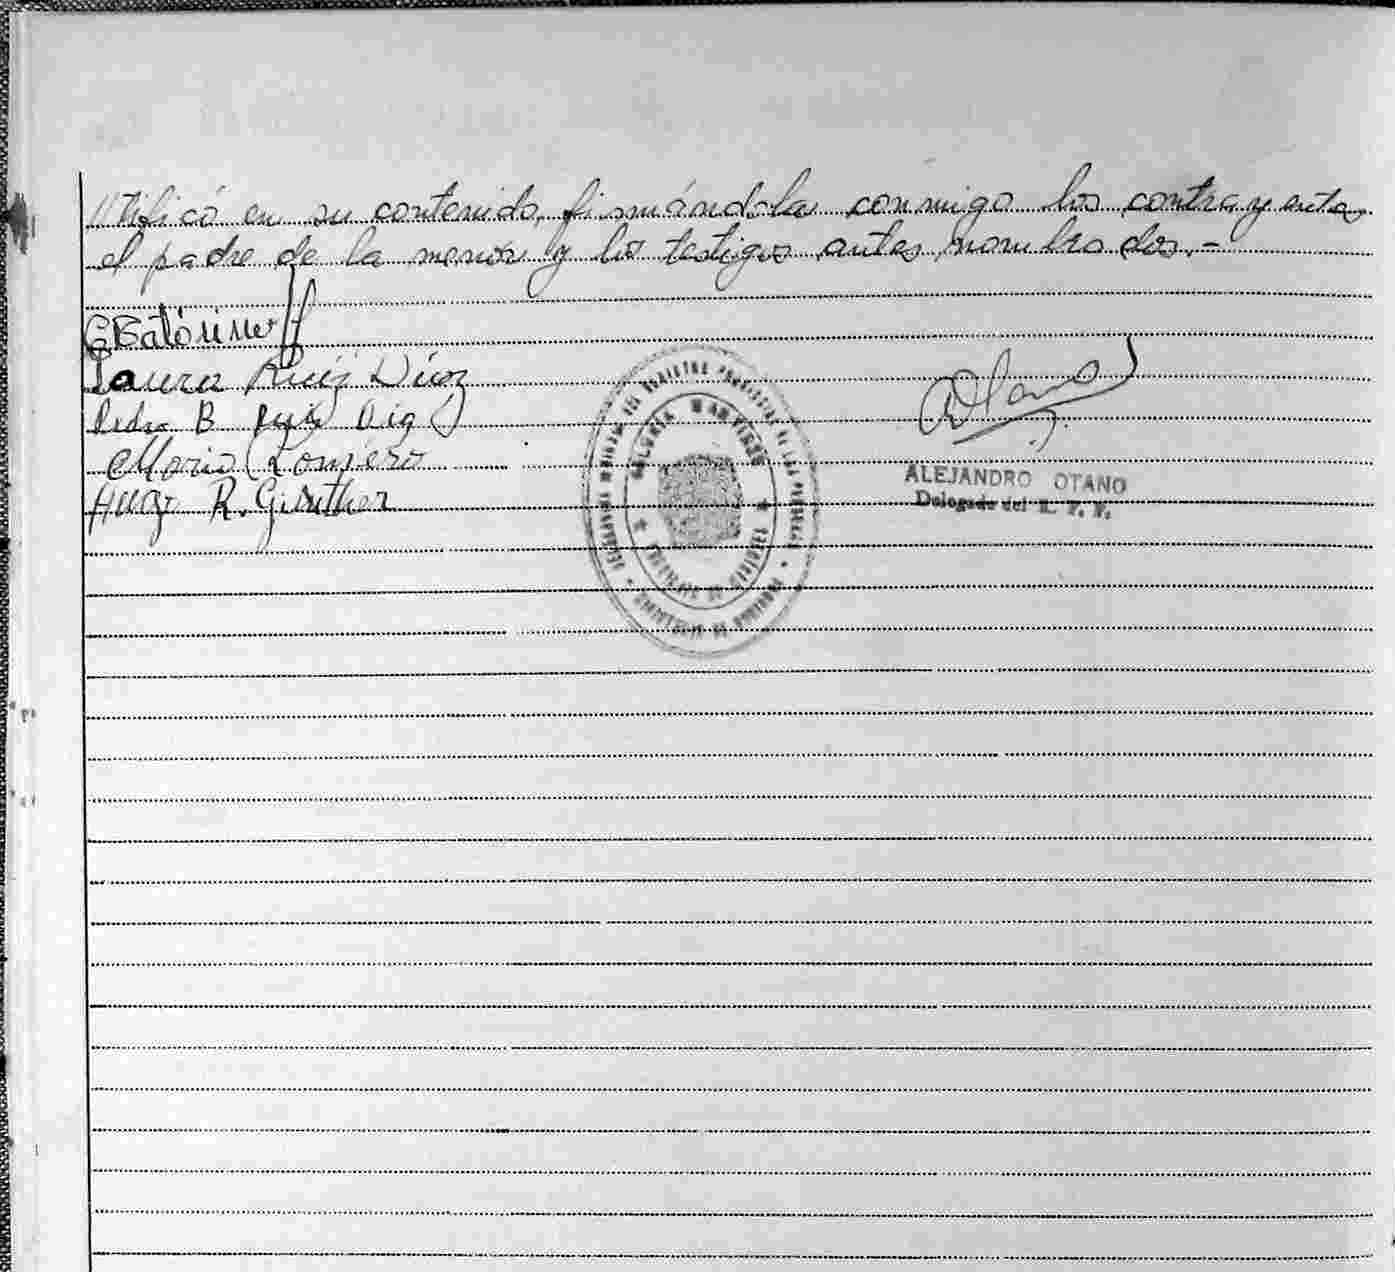 ratificó en su contenido, firmándola conmigo los contrayentes
el padre de la menor y los testigos antes nombrados.-
Laura Ruiz Diaz
Pedro B Ruiz Diaz
Mario Romero
Hugo R. Günther
COLONIA MARTIRES
ALEJANDRO OTANO
Delegado del R. P. P.